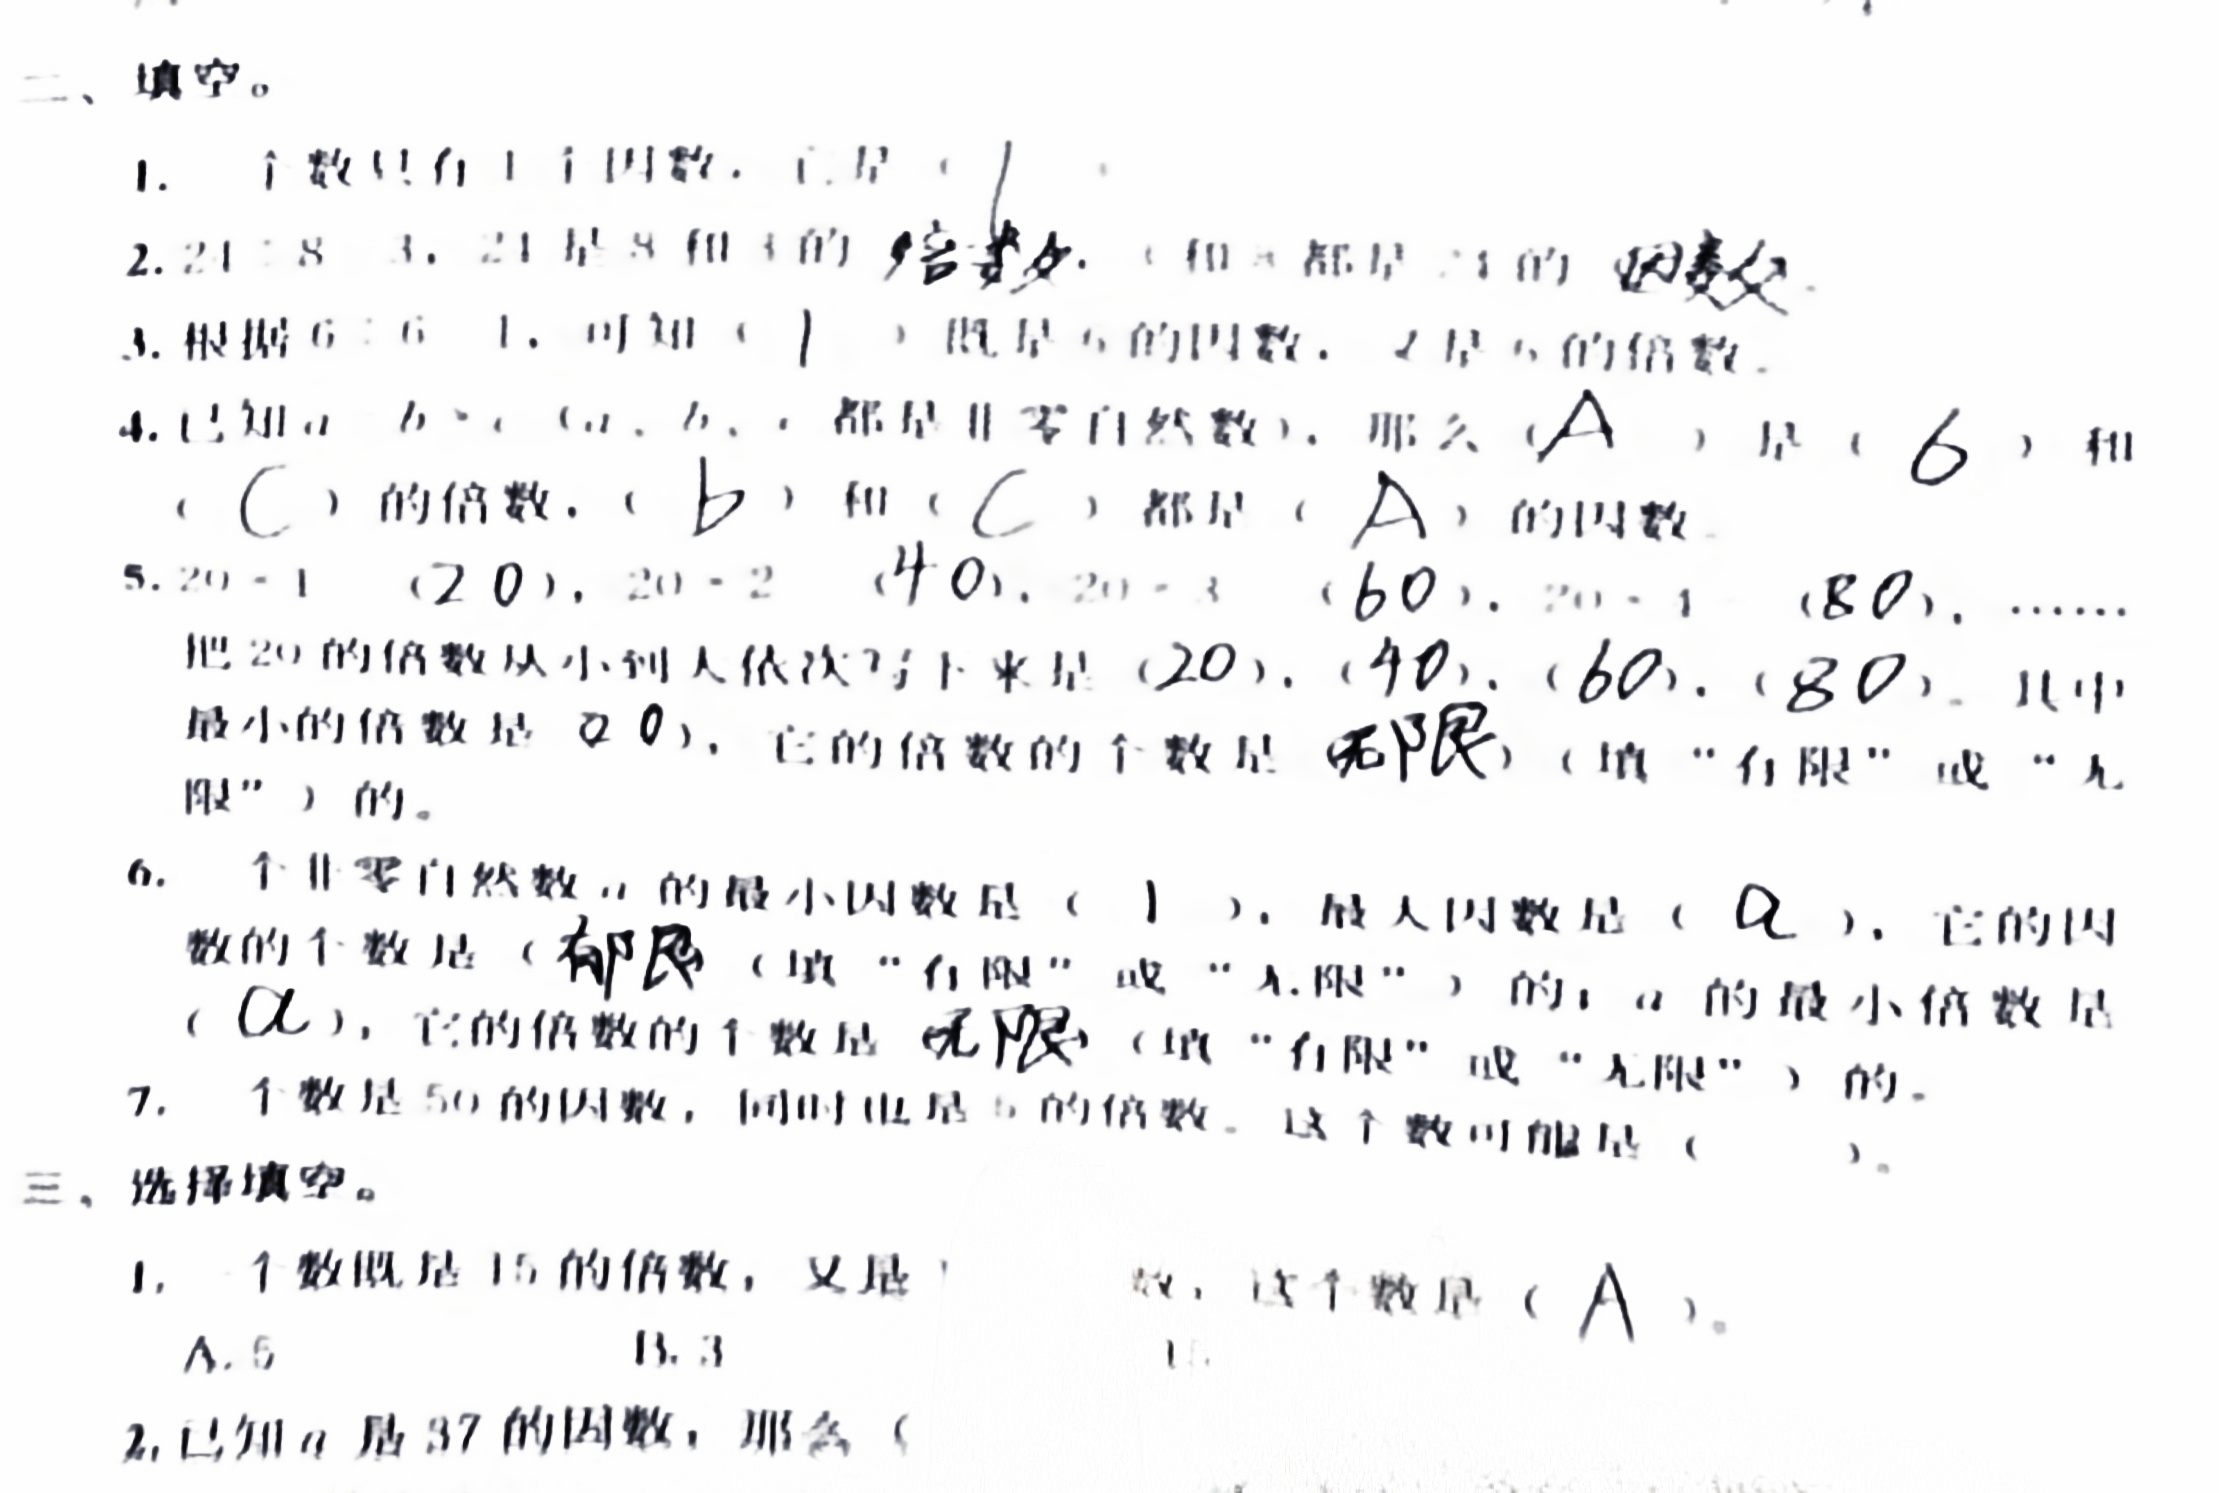 二、填空。
1. 一个数只有1个因数，它是（1
2. 24÷8=3，24是8和3的倍数，和都是24的因数.
3. 根据6÷6=1，可知（1）既是6的因数，又是6的倍数.
4. 已知a=b×c（a、b、c都是非零自然数），那么（A）是（6）和
（C）的倍数，（b）和（C）都是（A）的因数.
5. 20×1=（20），20×2=（40），20×3=（60），20×4=（80），……
把20的倍数从小到大依次写下来是（20），（40），（60），（80）。其中
最小的倍数是20），它的倍数的个数是（无限）（填“有限”或“无
限”）的。
6. 一个非零自然数a的最小因数是（1），最大因数是（a），它的因
数的个数是（有限（填“有限”或“无限”）的；a的最小倍数是
（a），它的倍数的个数是无限（填“有限”或“无限”）的。
7. 一个数是50的因数，同时也是5的倍数。这个数可能是（ ）。
三、选择填空。
1. 一个数既是15的倍数，又是 数，这个数是（A）。
A. 5 B. 3 15
2. 已知a是37的因数，那么（